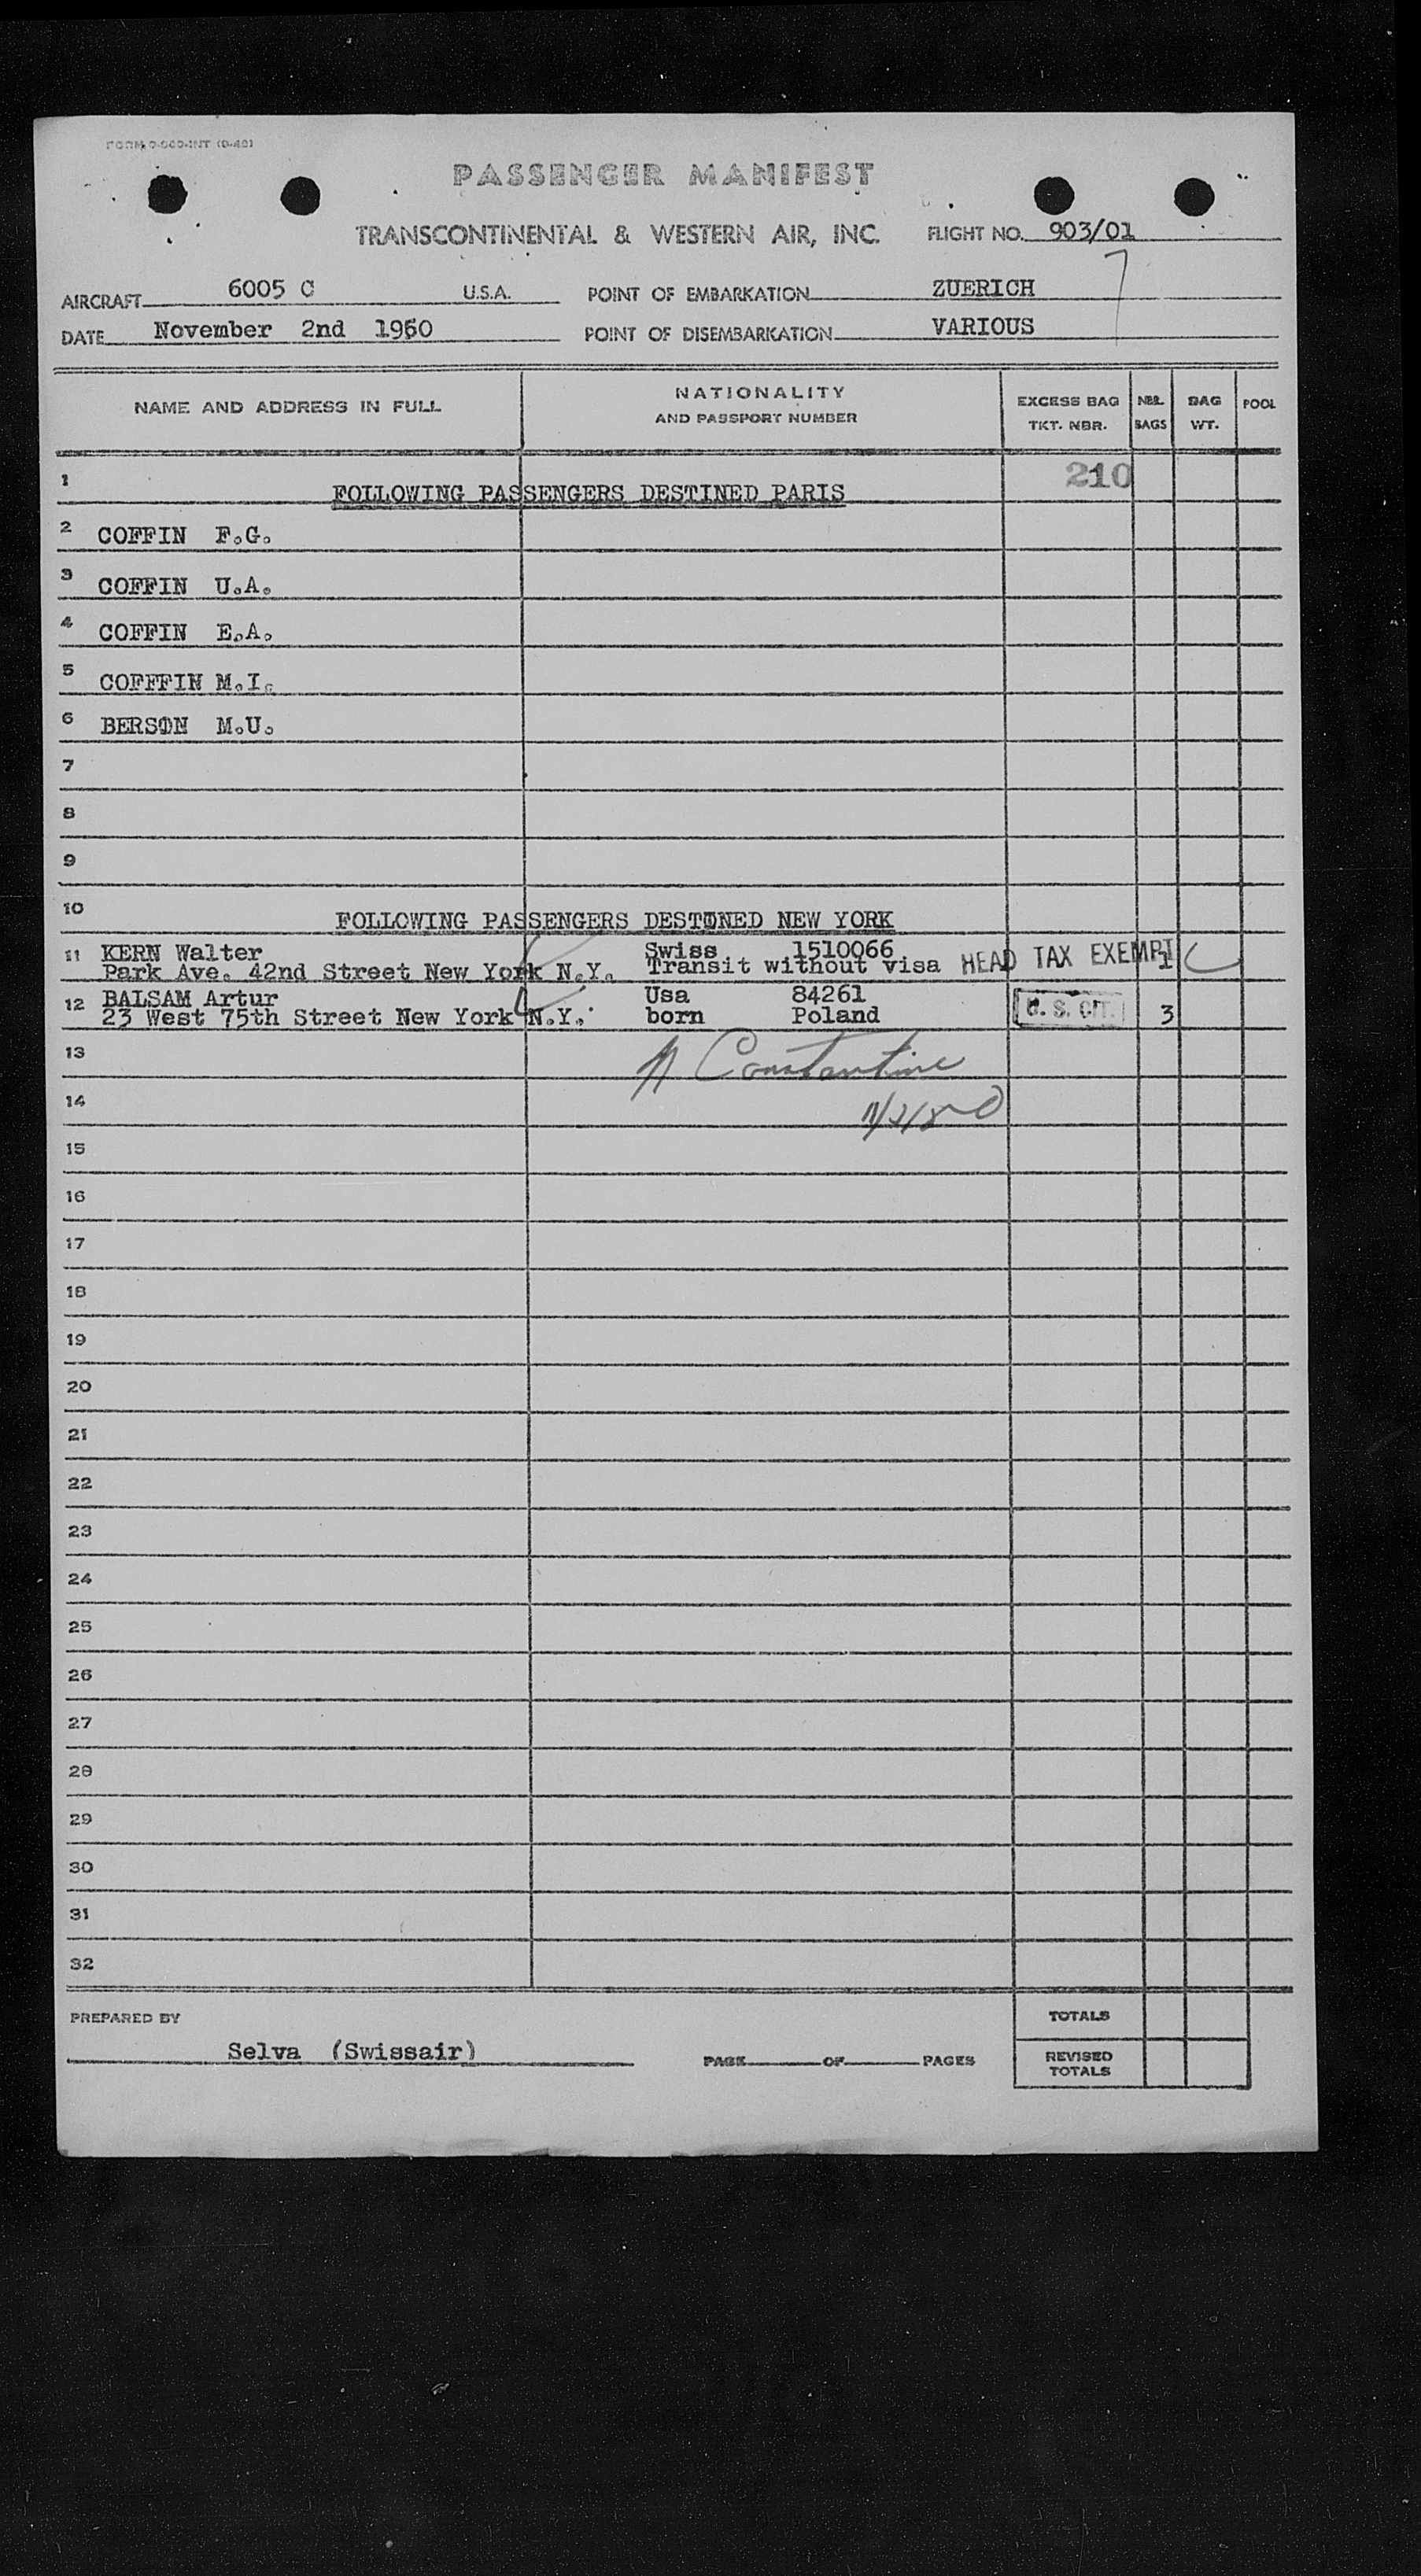 FORM O-060-INT (9-48)
PASSENGER MANIFEST
TRANSCONTINENTAL & WESTERN AIR, INC. FLIGHT NO. 903/01
AIRCRAFT 6005 C U.S.A. POINT OF EMBARKATION ZUERICH
DATE November 2nd 1950 POINT OF DISEMBARKATION VARIOUS
NAME AND ADDRESS IN FULL NATIONALITY AND PASSPORT NUMBER EXCESS BAG TKT. NBR. NBR. BAGS BAG WT. POOL
1 FOLLOWING PASSENGERS DESTINED PARIS 210
2 COFFIN F.G.
3 COFFIN U.A.
4 COFFIN E.A.
5 COFFFIN M.I.
6 BERSON M.U.
7
8
9
10 FOLLOWING PASSENGERS DESTONED NEW YORK
11 KERN Walter Swiss 1510066 HEAD TAX EXEMPT 1
Park Ave. 42nd Street New York N.Y. Transit without visa
12 BALSAM Artur Usa 84261 U. S. CIT. 3
23 West 75th Street New York N.Y. born Poland
13 N Constantine
14 11/2/50
15
16
17
18
19
20
21
22
23
24
25
26
27
28
29
30
31
32
PREPARED BY TOTALS
Selva (Swissair) PAGE OF PAGES REVISED TOTALS